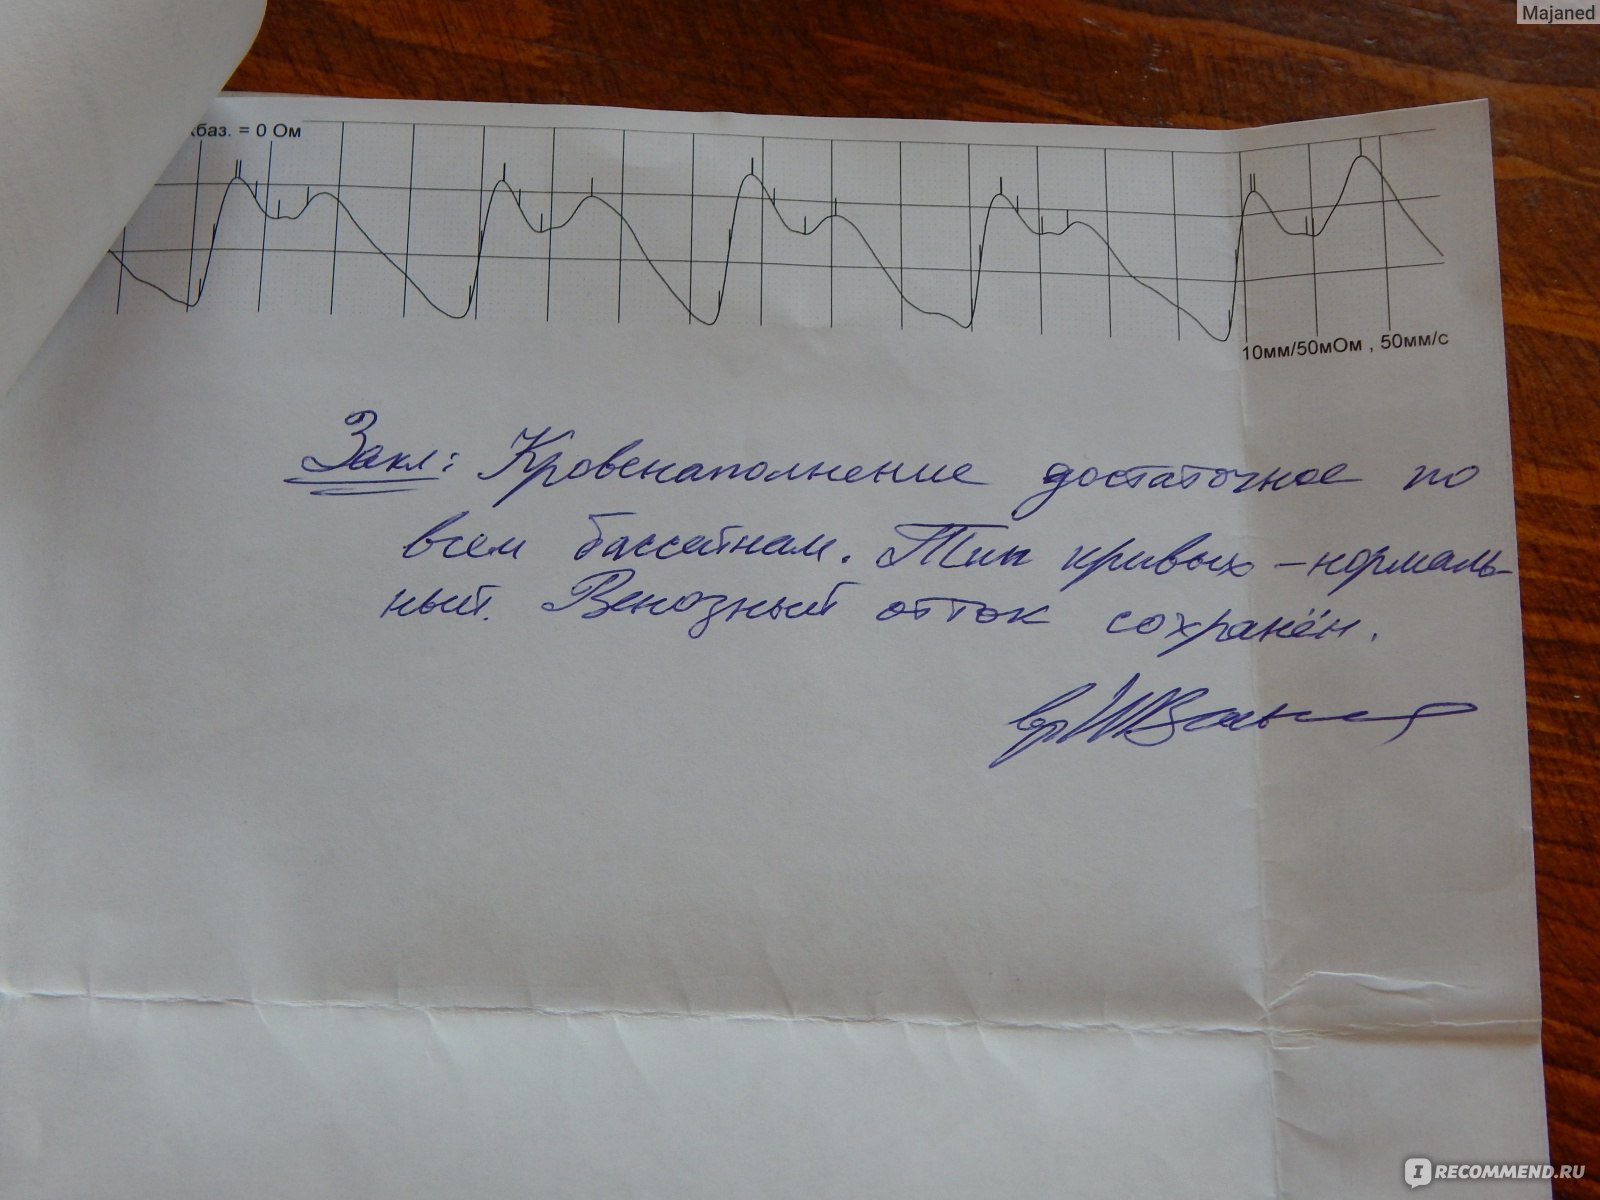 Majaned
баз. = 0 Ом
10мм/50мОм , 50мм/с
Закл: Кровенаполнение достаточное по
всем бассейнам. Тип кривых - нормаль-
ный. Венозный отток сохранён.
вр
IRECOMMEND.RU